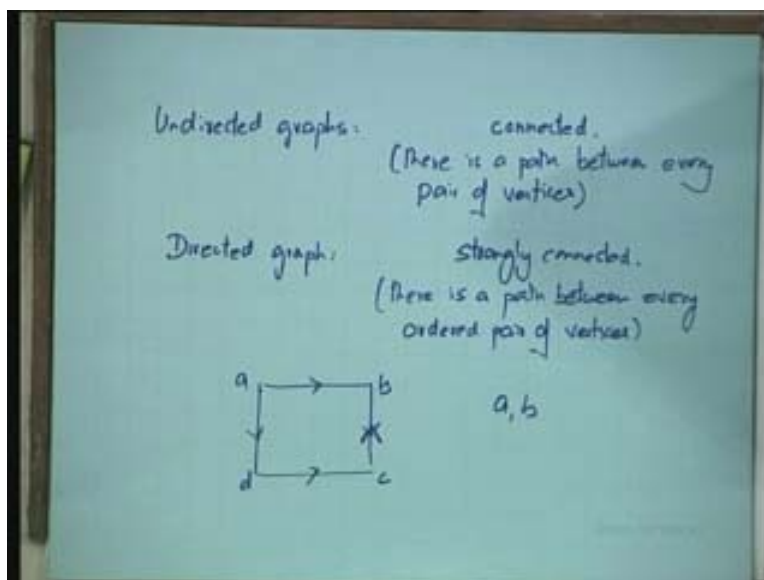 Undirected graphs: connected.
(There is a path between every
pair of vertices)
Directed graph: strongly connected.
(There is a path between every
ordered pair of vertices)
a b
a, b
d c